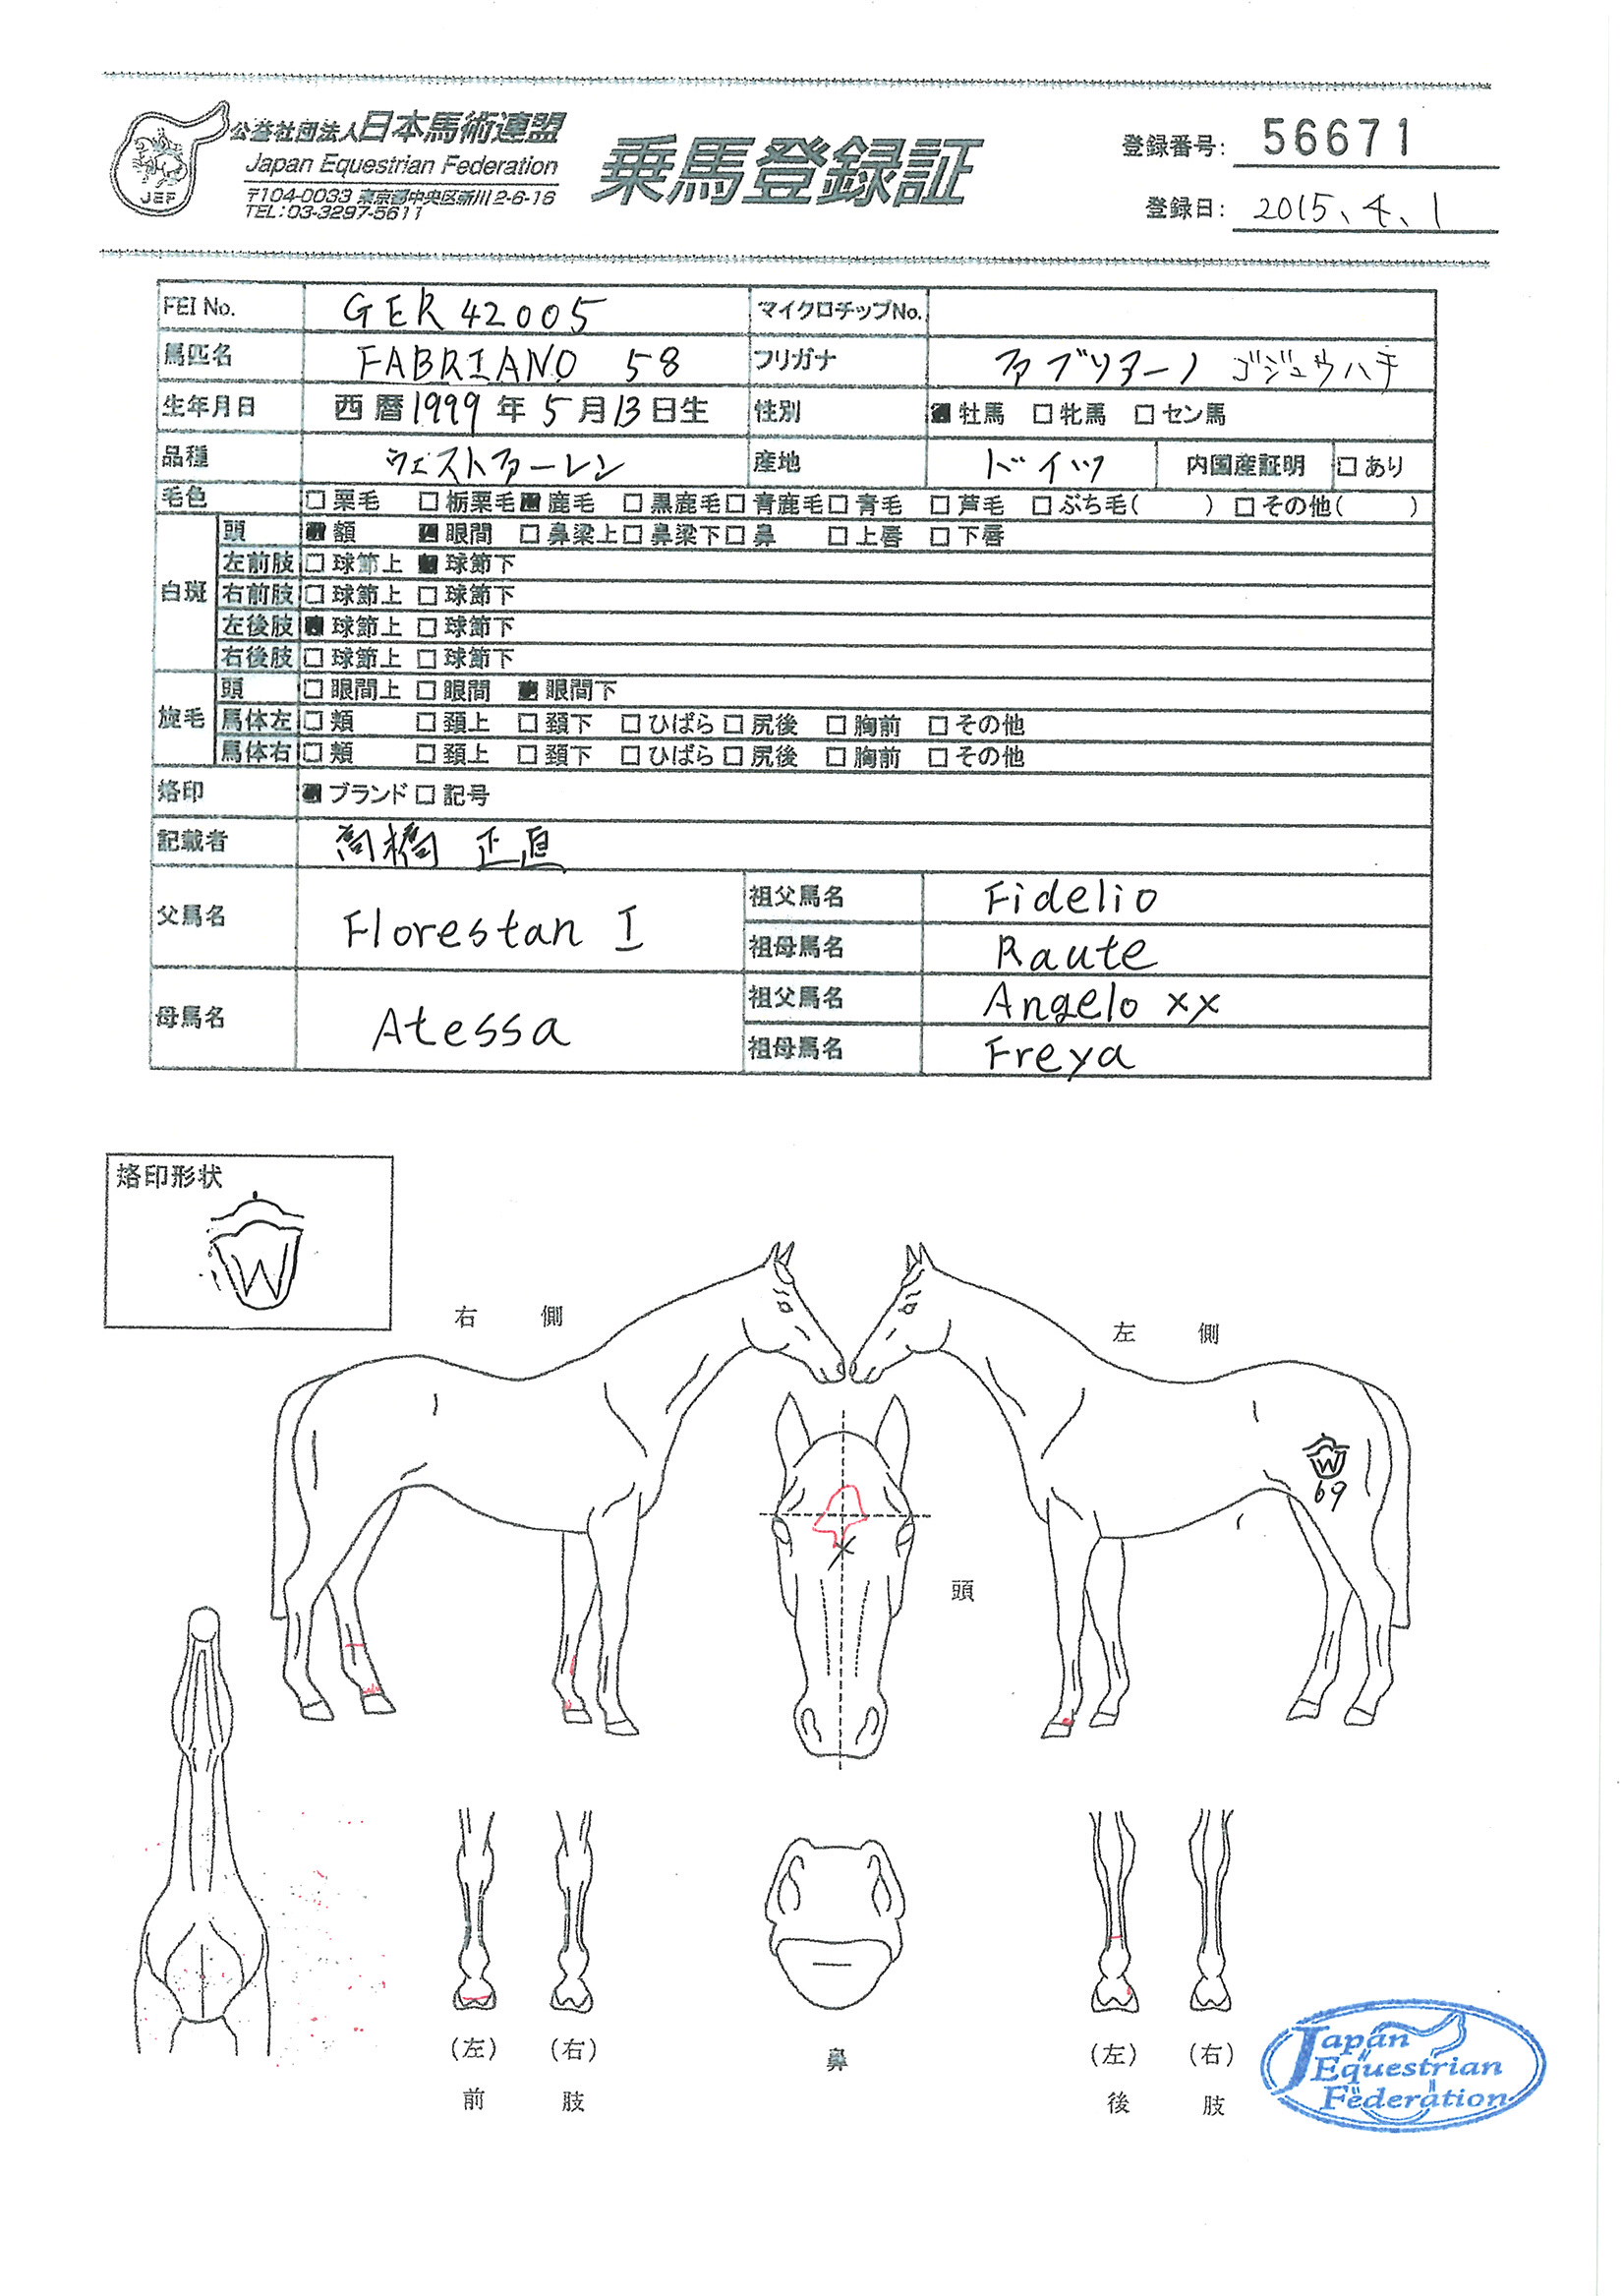 公益社団法人日本馬術連盟
Japan Equestrian Federation
〒104-0033 東京都中央区新川2-6-16
TEL:03-3297-5611
JEF
乗馬登録証
登録番号: 56671
登録日: 2015、4、1
FEI No. GER 42005 マイクロチップNo.
馬匹名 FABRIANO 58 フリガナ ファブリアーノ ゴジュウハチ
生年月日 西暦1999年5月13日生 性別 ■牡馬 □牝馬 □セン馬
品種 ウェストファーレン 産地 ドイツ 内国産証明 □あり
毛色 □栗毛 □栃栗毛 ■鹿毛 □黒鹿毛 □青鹿毛 □青毛 □芦毛 □ぶち毛( ) □その他( )
白斑 頭 ■額 ■眼間 □鼻梁上 □鼻梁下 □鼻 □上唇 □下唇
左前肢 □球節上 ■球節下
右前肢 □球節上 □球節下
左後肢 ■球節上 □球節下
右後肢 □球節上 □球節下
旋毛 頭 □眼間上 □眼間 ■眼間下
馬体左 □頬 □頚上 □頚下 □ひばら □尻後 □胸前 □その他
馬体右 □頬 □頚上 □頚下 □ひばら □尻後 □胸前 □その他
烙印 ■ブランド □記号
記載者 高橋 正直
父馬名 Florestan I 祖父馬名 Fidelio
祖母馬名 Raute
母馬名 Atessa 祖父馬名 Angelo xx
祖母馬名 Freya
烙印形状
W
右側
左側
W
69
頭
(左) (右)
前 肢
鼻
(左) (右)
後 肢
Japan
Equestrian
Federation